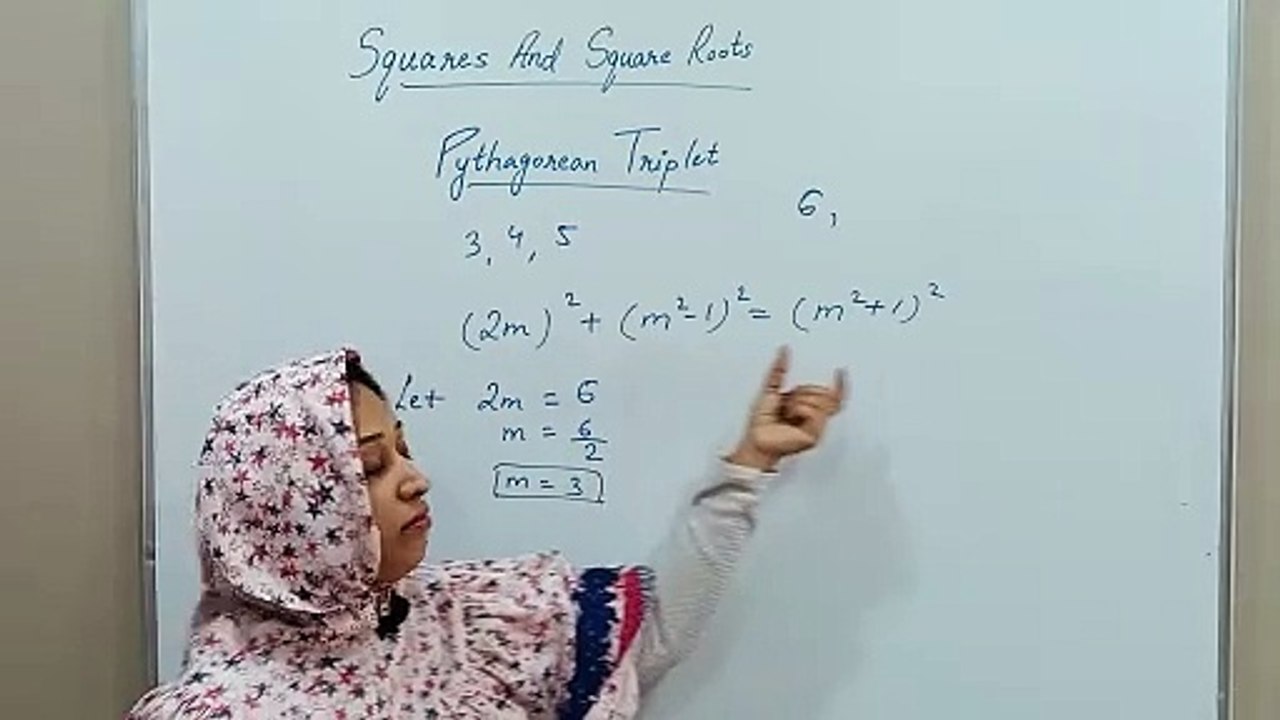 Squares And Square Roots
Pythagorean Triplet
6,
3, 4, 5
(2m)² + (m²-1)² = (m²+1)²
Let 2m = 6
m = 6/2
m = 3